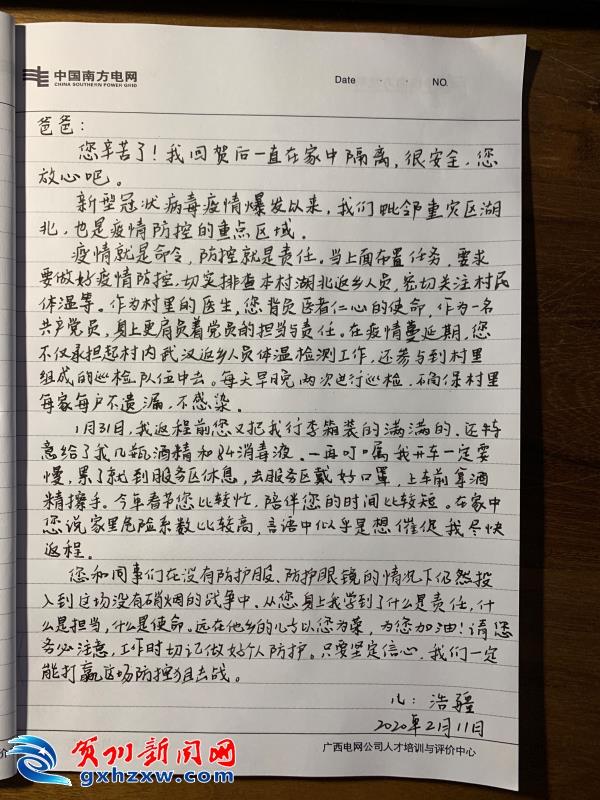 中国南方电网
CHINA SOUTHERN POWER GRID
Date · · NO.
爸爸：
您辛苦了！我回贺后一直在家中隔离，很安全，您
放心吧。
新型冠状病毒疫情爆发以来，我们毗邻重灾区湖
北，也是疫情防控的重点区域。
疫情就是命令，防控就是责任。当上面布置任务，要求
要做好疫情防控，切实排查本村湖北返乡人员，密切关注村民
体温等。作为村里的医生，您背负医者仁心的使命，作为一名
共产党员，身上更肩负着党员的担当与责任。在疫情蔓延期，您
不仅承担起村内武汉返乡人员体温检测工作，还参与到村里
组成的巡检队伍中去。每天早晚两次进行巡检，确保村里
每家每户不遗漏，不感染。
1月31日，我返程前您又把我行李箱装的满满的，还特
意给了我几瓶酒精和84消毒液。一再叮嘱我开车一定要
慢，累了就到服务区休息，去服务区戴好口罩，上车前拿酒
精擦手。今年春节您比较忙，陪伴您的时间比较短。在家中
您说家里危险系数比较高，言语中似乎是想催促我尽快
返程。
您和同事们在没有防护服、防护眼镜的情况下仍然投
入到这场没有硝烟的战争中，从您身上我学到了什么是责任，什
么是担当，什么是使命。远在他乡的儿子以您为荣，为您加油！请您
务必注意，工作时切记做好个人防护。只要坚定信心，我们一定
能打赢这场防控狙击战。
儿：浩疆
2020年2月11日
广西电网公司人才培训与评价中心
价
贺州新闻网
gxhzxw.com